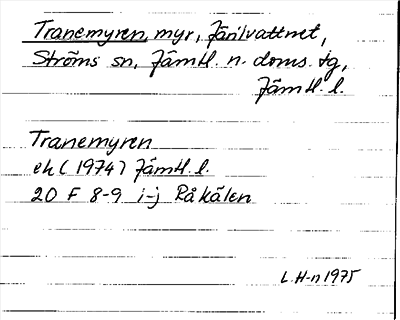 Tranemyren, myr, Järilvattnet,
Ströms sn, Jämtl. n. doms. tg,
Jämtl. l.
Tranemyren
ek (1974) Jämtl. l.
20 F 8-9 i-j Råkälen
L. H-n 1975